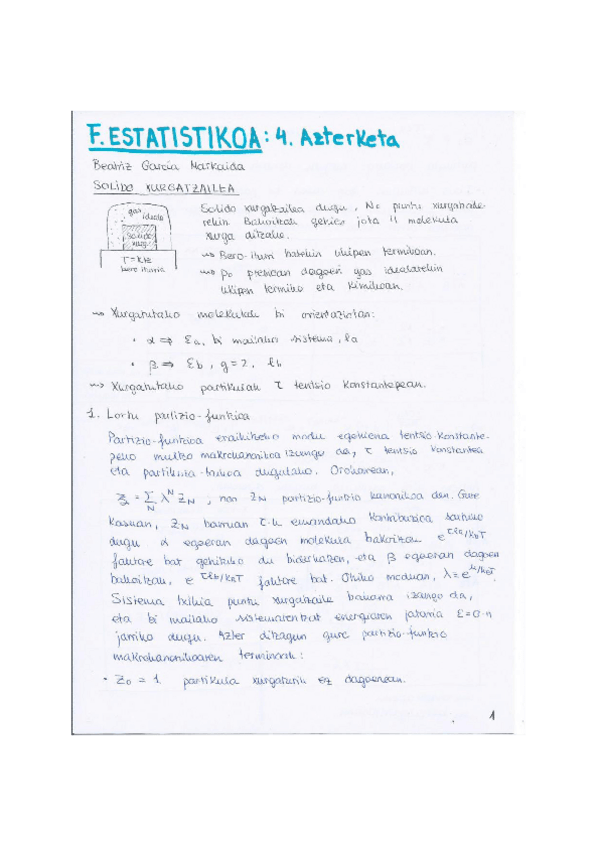 F. ESTATISTIKOA: 4. Azterketa
Beatriz García Markaida
SOLIDO XURGATZAILEA
gas
ideala
solido
xurg.
T = kte
bero iturria
Solido xurgatzailea dugu, Nc puntu xurgatzaile-
rekin. Bakoitzak gehien jota 11 molekula
xurga ditzake.
⇝ Bero-iturri batekin ukipen termikoan.
⇝ po presioan dagoen gas idealarekin
ukipen termiko eta kimikoan.
⇝ Xurgatutako molekulak bi orientaziotan:
• α ⇒ Ea, bi mailako sistema, la
• β ⇒ Eb, g=2, lb
⇝ Xurgatutako partikulak τ tentsio konstantepean.
1. Lortu partizio-funtzioa
Partizio-funtzioa eraikitzeko modu egokiena tentsio konstante-
peko multzo makrokanonikoa izango da, τ tentsio konstantea
eta partikula-trukea dugulako. Orokorrean,
Ʒ = Σ_N λ^N Z_N, non Z_N partizio-funtzio kanonikoa den. Gure
kasuan, Z_N barruan τ-k emandako kontribuzioa sartuko
dugu α egoeran dagoen molekula bakoitzak e^{τla/k_BT}
faktore bat gehituko du biderkatzen, eta β egoeran dagoen
bakoitzak, e^{τlb/k_BT} faktore bat. Ohiko moduan, λ = e^{μ/k_BT}.
Sistema txikia puntu xurgatzaile bakarra izango da,
eta bi mailako sistemarentzat energiaren jatorria E=0-n
jarriko dugu. Azter ditzagun gure partizio-funtzio
makrokanonikoaren terminoak:
• Z_0 = 1. partikula xurgaturik ez dagoenean.
1